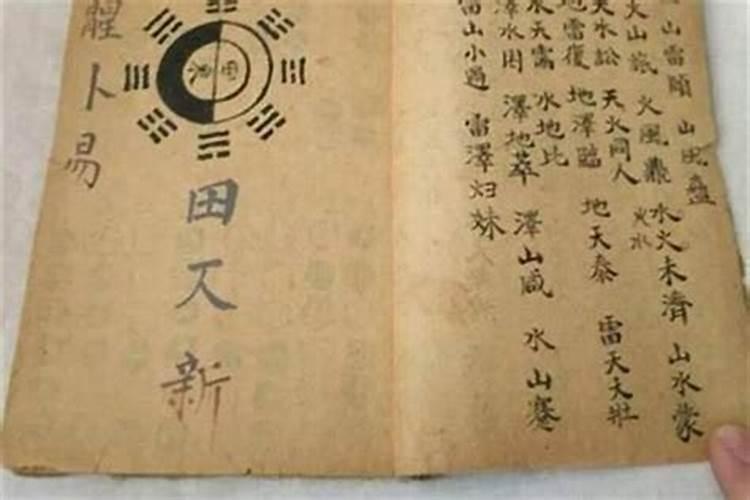 山雷頤 山風蠱
火山旅 火風鼎 火水 水火未濟 山水蒙
天水訟 天火同人 地天泰 雷天天壯
地雷復 地澤臨
水天需 水地比
澤水困 澤地萃 澤山咸 水山蹇
雷山小過 雷澤归妹
田 新
卜易